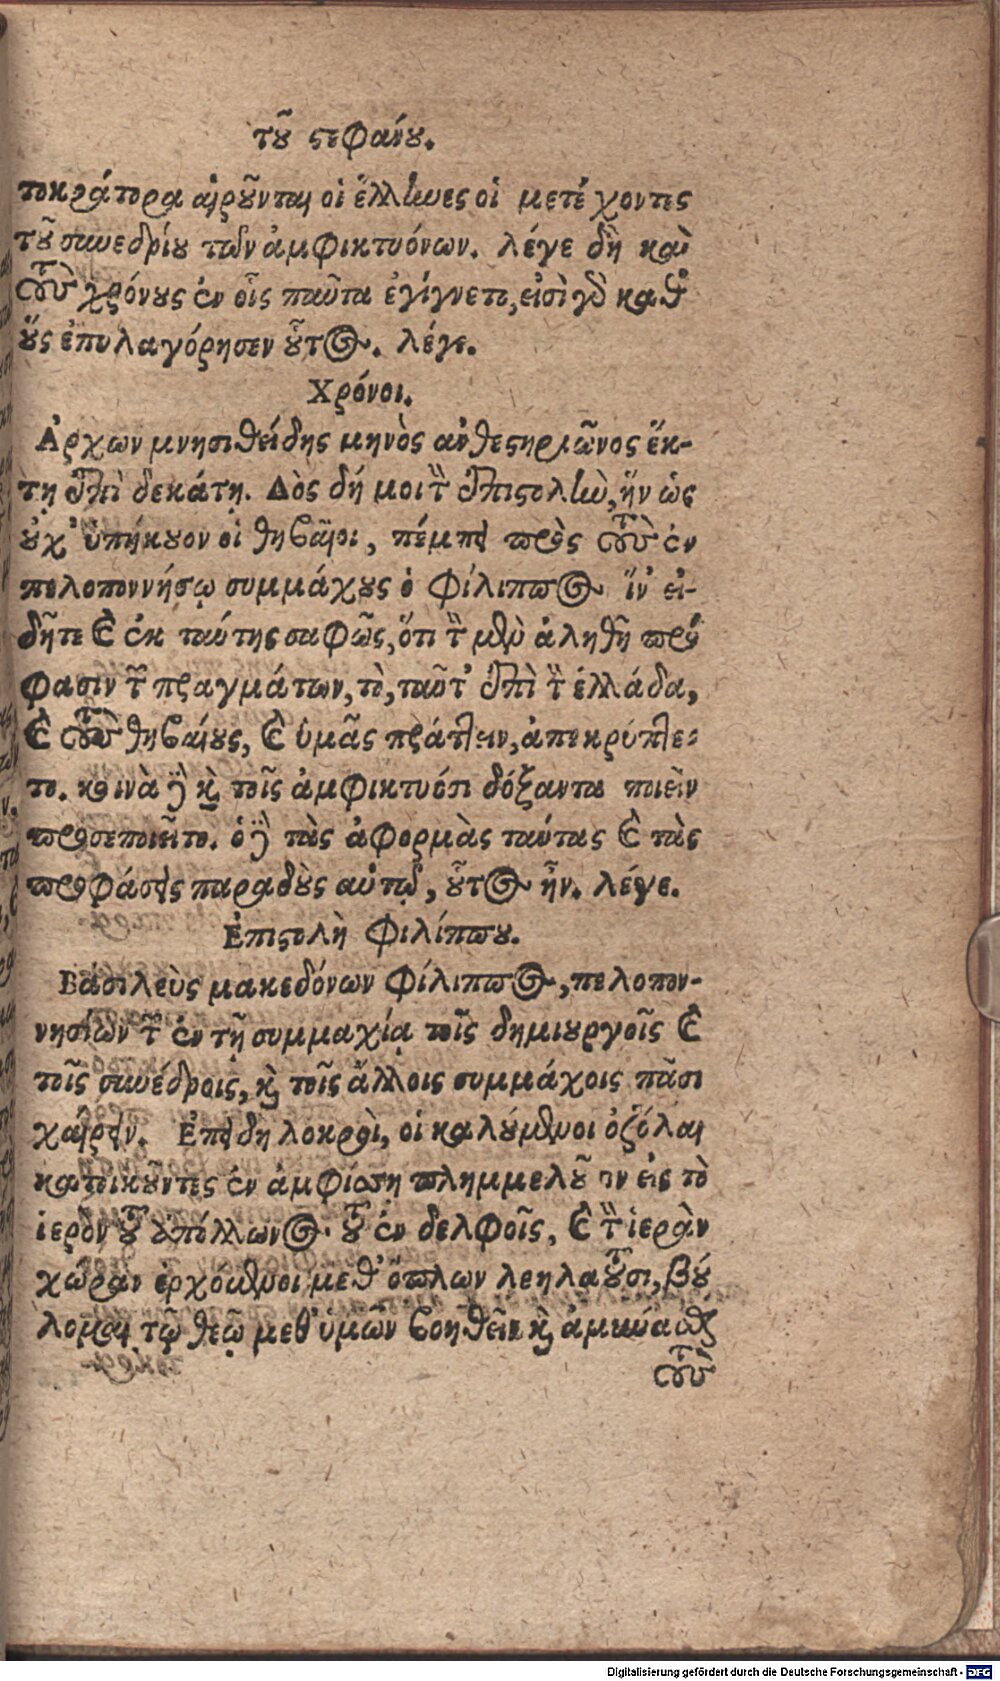 τοῦ στεφάνου.
τοκράτορα αἱροῦνται οἱ ἕλληνες οἱ μετέχοντες
τοῦ συνεδρίου τῶν ἀμφικτυόνων. λέγε δὴ καὶ
τοὺς χρόνους ἐν οἷς ταῦτα ἐγίγνετο, εἰσὶ γὸ καθ'
οὓς ἐπυλαγόρησεν οὗτος. λέγε.
Χρόνοι.
Ἄρχων μνησιθείδης μηνὸς ἀνθεστηριῶνος ἕκ-
τῃ ἐπὶ δεκάτῃ. Δὸς δή μοι τὴν ἐπιστολὴν, ἣν ὡς
οὐχ' ὑπήκουον οἱ θηβαῖοι, πέμπει πρὸς τοὺς ἐν
πελοποννήσῳ συμμάχους ὁ Φίλιππος ἵν' εἰ-
δῆτε καὶ ἐκ ταύτης σαφῶς, ὅτι τὴν μὲν ἀληθῆ πρό
φασιν τῶν πραγμάτων, τὸ, ταῦτ' ἐπὶ τὴν ἑλλάδα,
καὶ τοὺς θηβαίους, καὶ ὑμᾶς πράττειν, ἀπεκρύπτε-
το. κοινὰ δὲ καὶ τοῖς ἀμφικτυόσι δόξαντα ποιεῖν
προσεποιεῖτο. ὁ δὲ τὰς ἀφορμὰς ταύτας καὶ τὰς
προφάσεις παραδοὺς αὐτῷ, οὗτος ἦν. λέγε.
Ἐπιστολὴ Φιλίππου.
Βασιλεὺς μακεδόνων Φίλιππος, πελοπον-
νησίων τῶν ἐν τῇ συμμαχίᾳ τοῖς δημιουργοῖς καὶ
τοῖς συνέδροις, καὶ τοῖς ἄλλοις συμμάχοις πᾶσι
χαίρειν. Ἐπειδὴ λοκροὶ, οἱ καλούμενοι ὀζόλαι
κατοικοῦντες ἐν ἀμφίσσῃ πλημμελοῦσιν εἰς τὸ
ἱερὸν τοῦ ἀπόλλωνος τοῦ ἐν δελφοῖς, καὶ τὴν ἱερὰν
χώραν ἐρχόμενοι μεθ' ὅπλων λεηλατοῦσι, βού
λομαι τῷ θεῷ μεθ' ὑμῶν βοηθεῖν καὶ ἀμύνασθαι
τοὺς